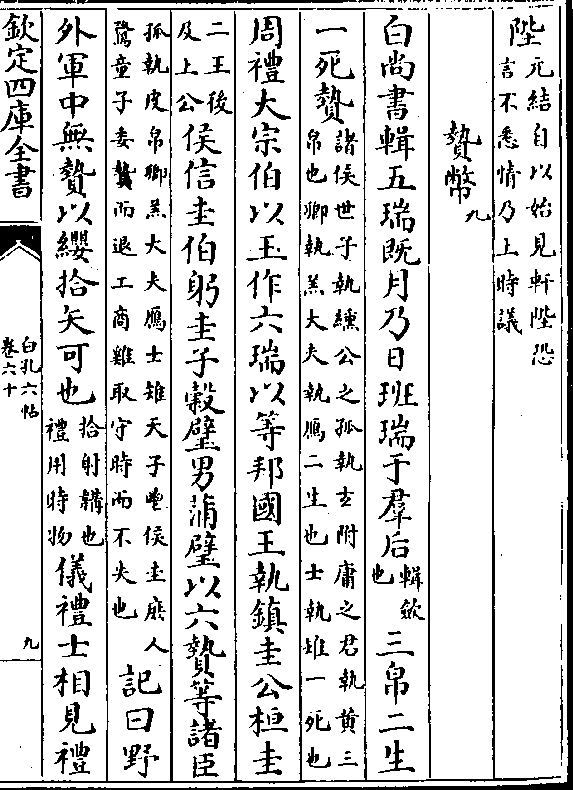 陛元結自以始見軒陛恐
言不悉情乃上時議
贄幣九
白尚書輯五瑞既月乃日班瑞于羣后輯斂
也三帛二生
一死贄諸侯世子執纁公之孤執玄附庸之君執黄三
帛也卿執羔大夫執鴈二生也士執雉一死也
周禮大宗伯以玉作六瑞以等邦國王執鎮圭公桓圭
二王後
及上公侯信圭伯躬圭子糓璧男蒲璧以六贄等諸臣
孤執皮帛卿羔大夫鴈士雉天子鬯侯圭庶人
鶩童子委贄而退工商雞取守時而不失也記曰野
外軍中無贄以纓拾矢可也拾射韝也
禮用時物儀禮士相見禮
欽定四庫全書
白孔六帖
卷六十
九